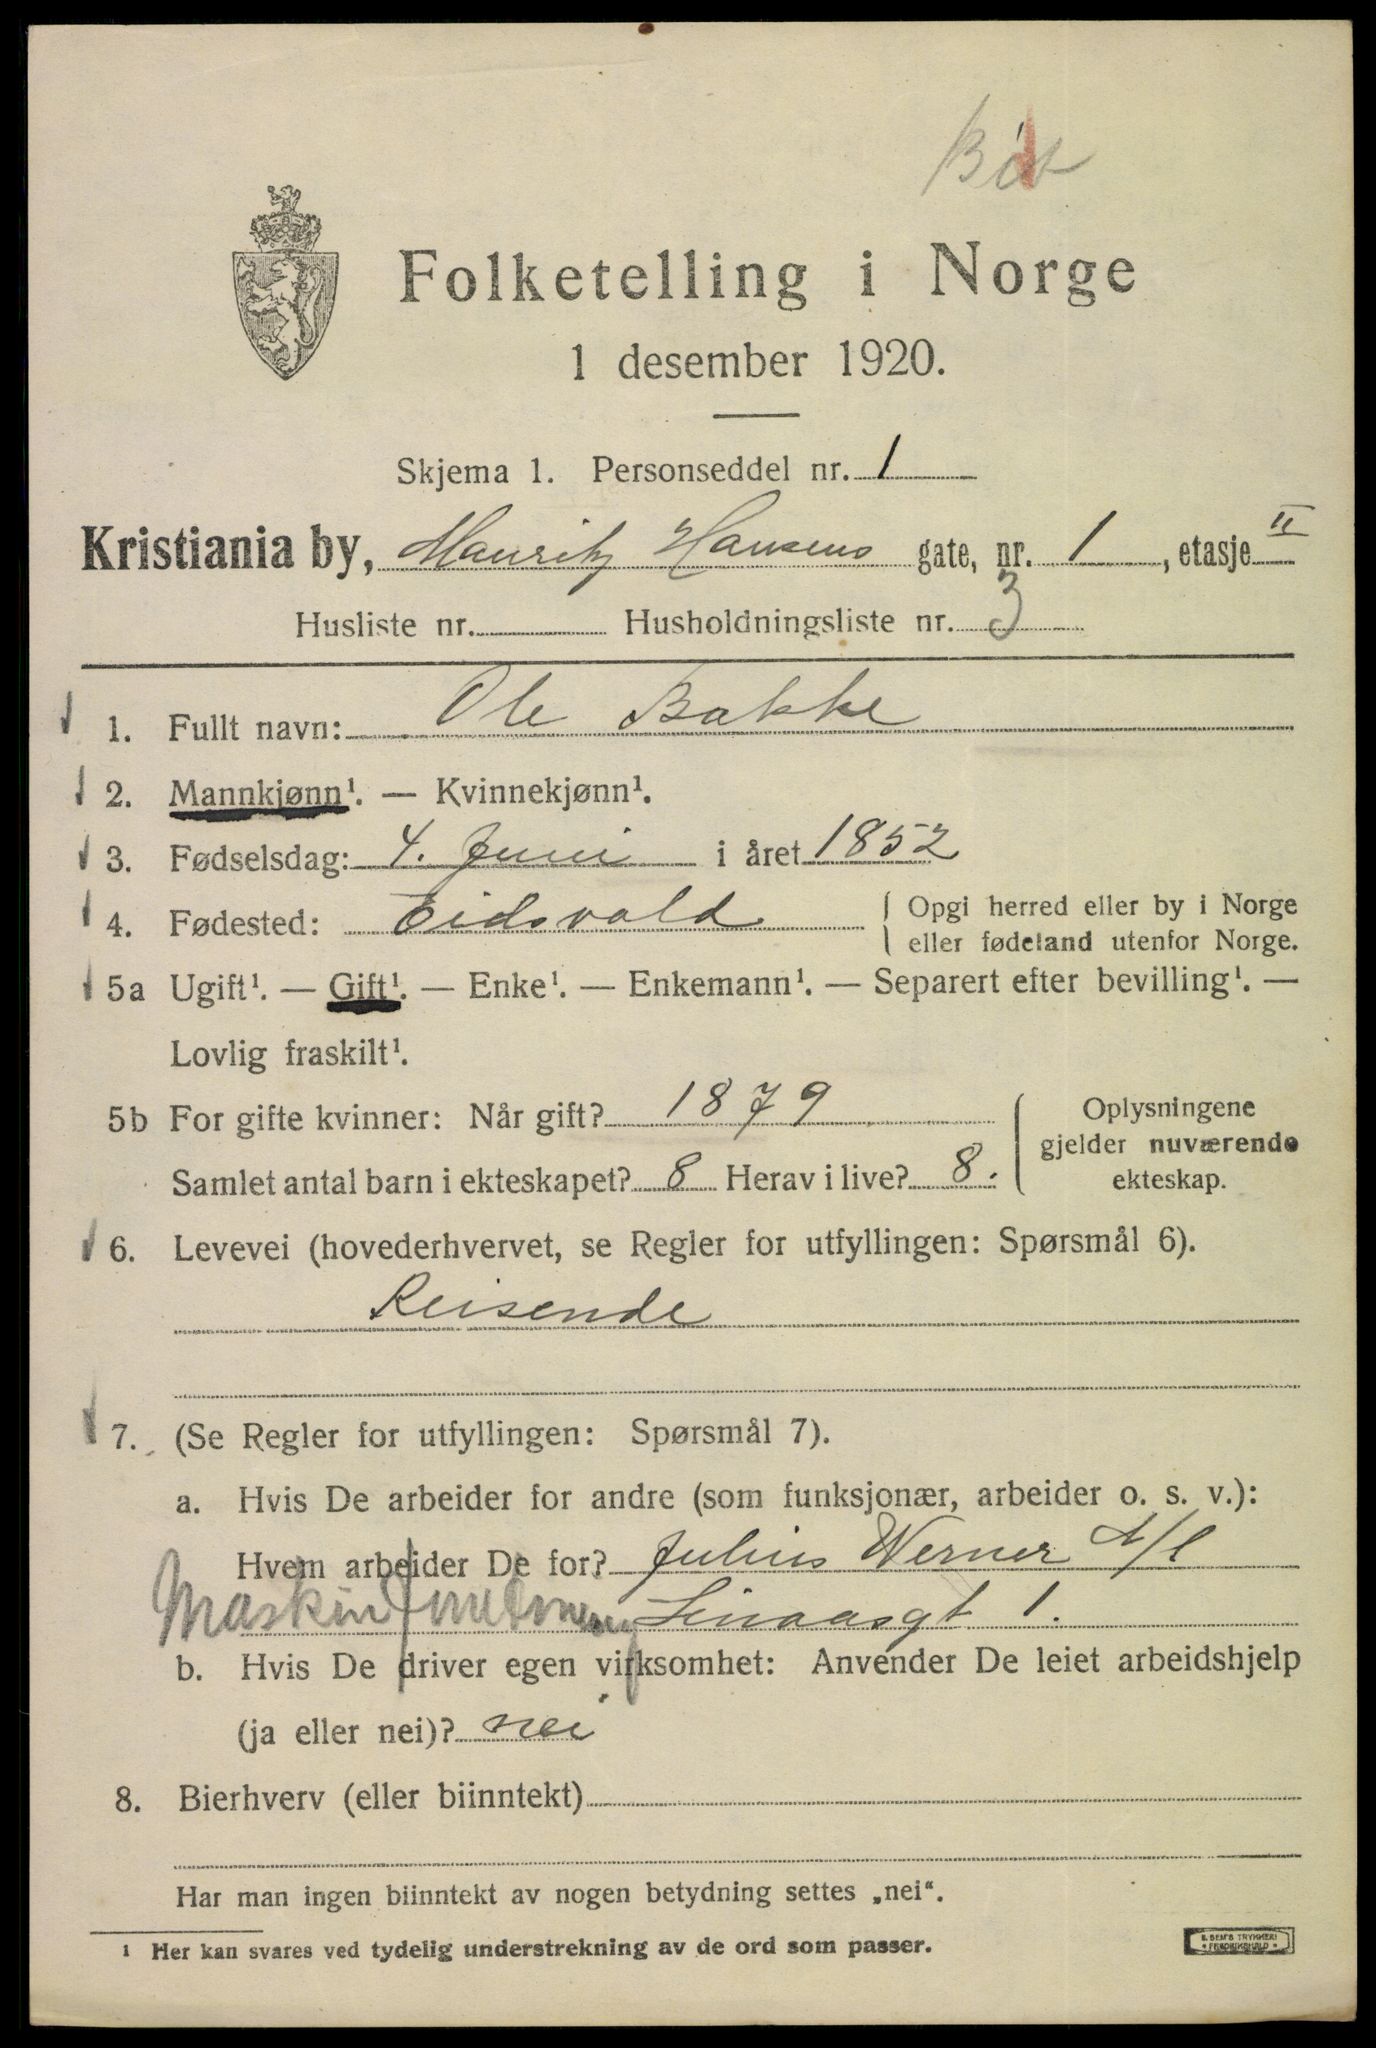 Folketelling i Norge
1 desember 1920.
Skjema 1. Personseddel nr. 1
Kristiania by, Mauritz Hansens gate, nr. 1, etasje II
Husliste nr. Husholdningsliste nr. 3
1. Fullt navn: Ole Bakke
2. Mannkjønn¹. — Kvinnekjønn¹.
3. Fødselsdag: 4. Juni i året 1852
4. Fødested: Eidsvold
Opgi herred eller by i Norge
eller fødeland utenfor Norge.
5a Ugift¹. — Gift¹. — Enke¹. — Enkemann¹. — Separert efter bevilling¹. —
Lovlig fraskilt¹.
5b For gifte kvinner: Når gift? 1879
Samlet antal barn i ekteskapet? 8 Herav i live? 8.
Oplysningene
gjelder nuværende
ekteskap.
6. Levevei (hovederhvervet, se Regler for utfyllingen: Spørsmål 6).
Reisende
7. (Se Regler for utfyllingen: Spørsmål 7).
a. Hvis De arbeider for andre (som funksjonær, arbeider o. s. v.):
Hvem arbeider De for? Julius Werner A/S
Maskin
b. Hvis De driver egen virksomhet: Anvender De leiet arbeidshjelp
(ja eller nei)? nei
8. Bierhverv (eller biinntekt)
Har man ingen biinntekt av nogen betydning settes „nei".
¹ Her kan svares ved tydelig understrekning av de ord som passer.
E. SEM'S TRYKKERI
FREDRIKSHALD